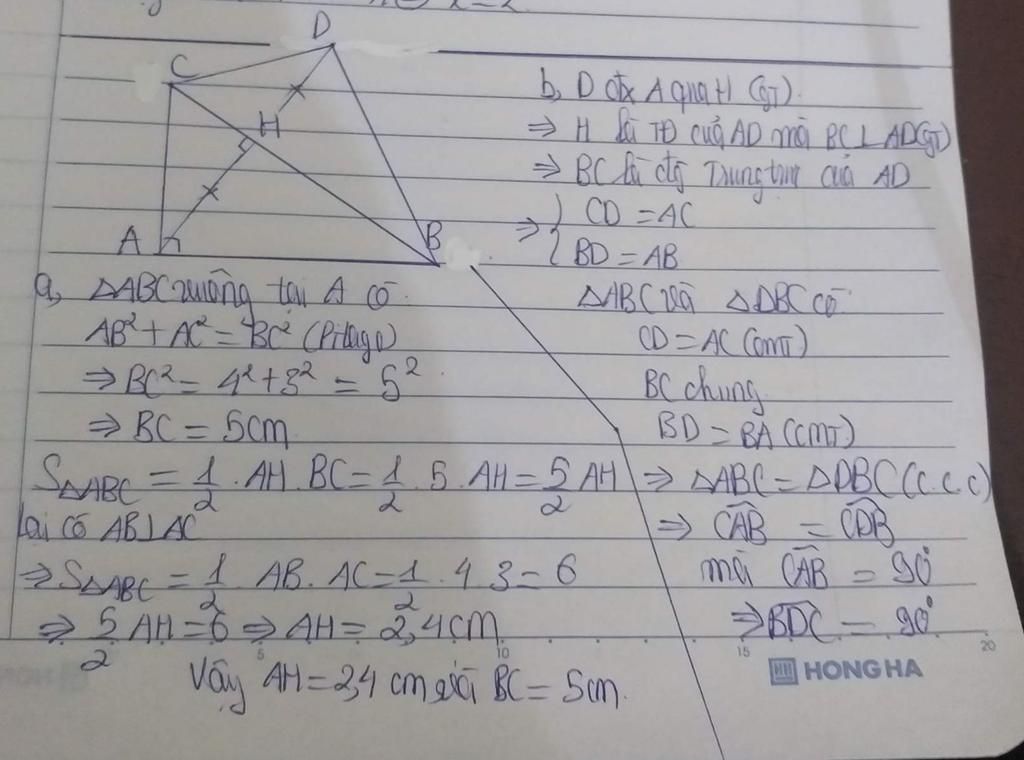 D
C
H
A
B
a, △ABC vuông tại A có
AB² + AC² = BC² (Pitago)
⇒ BC² = 4² + 3² = 5²
⇒ BC = 5cm
S△ABC = 1/2 . AH . BC = 1/2 . 5 . AH = 5/2 AH
lại có AB⊥AC
⇒ S△ABC = 1/2 . AB . AC = 1/2 . 4 . 3 = 6
⇒ 5/2 AH = 6 ⇒ AH = 2,4cm
Vậy AH = 2,4 cm và BC = 5cm.
b, D đx A qua H (GT).
⇒ H là TĐ của AD mà BC⊥AD(GT)
⇒ BC là đg Trung trực của AD
⇒ { CD = AC
BD = AB
△ABC và △DBC có
CD = AC (cmT)
BC chung
BD = BA (cmT)
⇒ △ABC = △DBC (c.c.c)
⇒ CAB = CDB
mà CAB = 90°
⇒ BDC = 90°
5 10 15 20
HH HONG HA